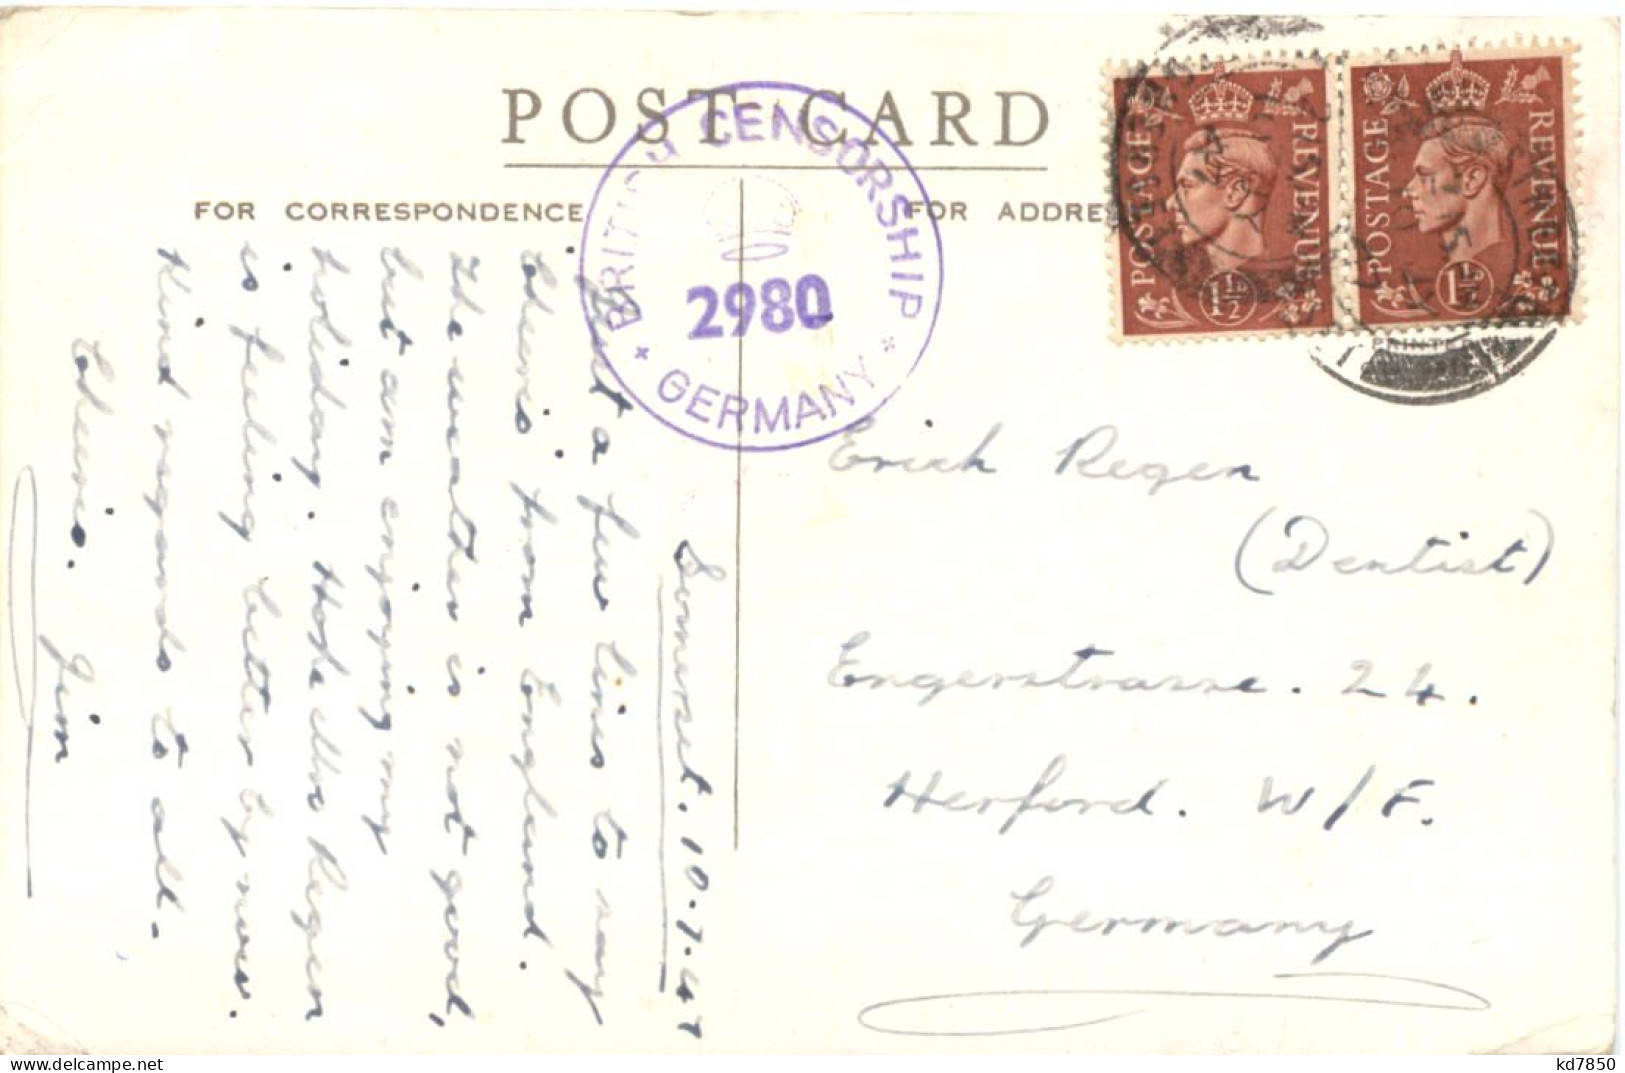 POST CARD
FOR CORRESPONDENCE
FOR ADDRE
BRITISH CENSORSHIP
2980
* GERMANY *
POSTAGE REVENUE
1½
POSTAGE REVENUE
1½
PRINTE
Somerset. 10.7.47
Just a few lines to say
cheerio from England.
The weather is not good,
but am enjoying my
holiday. Hope Mrs Regen
is feeling better by now.
Kind regards to all.
Cheerio. Jim
Erich Regen
(Dentist)
Engerstrasse. 24.
Herford. W/F.
Germany
kd7850